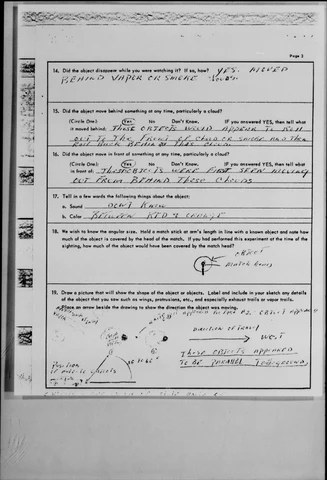 Page 3
14. Did the object disappear while you were watching it? If so, how? YES. MOVED
BEHIND VAPOR OR SMOKE
15. Did the object move behind something at any time, particularly a cloud?
(Circle One): Yes No Don't Know. IF you answered YES, then tell what
it moved behind: THESE OBJECTS WOULD APPEAR TO
OUT TO THE FRONT OF CLOUD OR SMOKE AND THEN
BACK BEHIND THE CLOUD
16. Did the object move in front of something at any time, particularly a cloud?
(Circle One): Yes No Don't Know. IF you answered YES, then tell what
in front of: THESE OBJECTS WERE FIRST SEEN MOVING
OUT FROM BEHIND THESE CLOUDS
17. Tell in a few words the following things about the object:
a. Sound DON'T KNOW
b. Color BETWEEN RED & ORANGE
18. We wish to know the angular size. Hold a match stick at arm's length in line with a known object and note how
much of the object is covered by the head of the match. If you had performed this experiment at the time of the
sighting, how much of the object would have been covered by the match head?
OBJECT
MATCH HEAD
19. Draw a picture that will show the shape of the object or objects. Label and include in your sketch any details
of the object that you saw such as wings, protrusions, etc., and especially exhaust trails or vapor trails.
Place an arrow beside the drawing to show the direction the object was moving.
#2 OBJECT
DIRECTION OF TRAVEL
WEST
THESE OBJECTS APPEARED
TO BE PARALLEL TO GROUND
POSITION
OF
OBJECTS